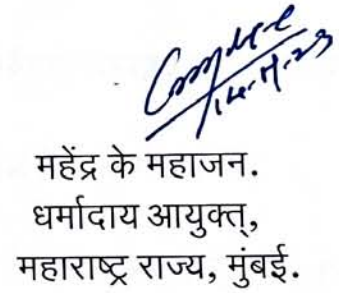 महेंद्र के महाजन.
धर्मादाय आयुक्त्,
महाराष्ट्र राज्य, मुंबई.